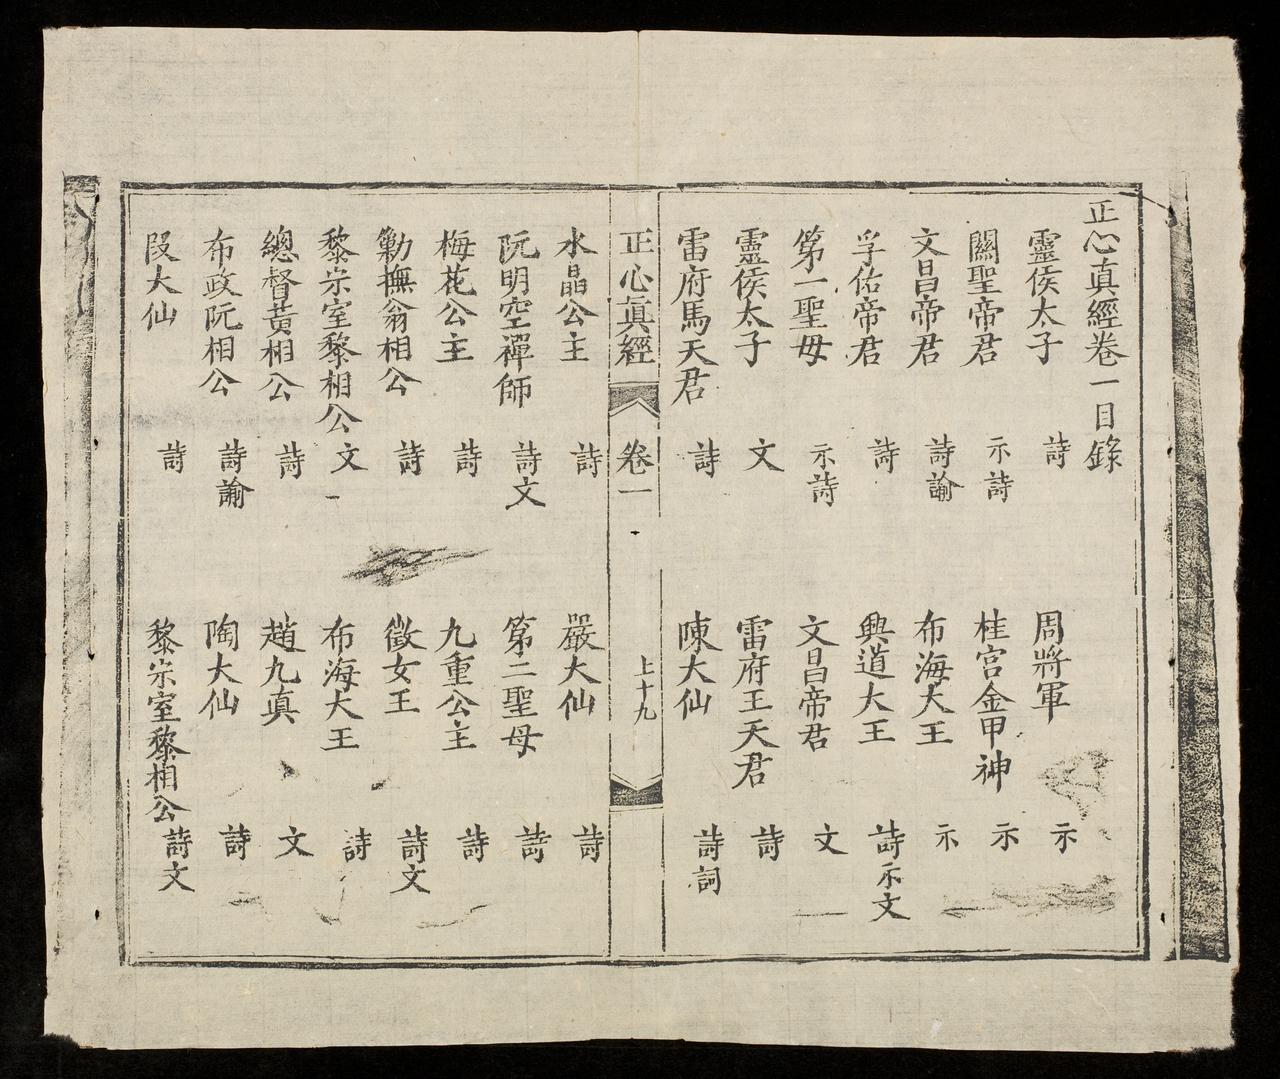 正心真經卷一目錄
靈侯太子 詩 周將軍 示
關聖帝君 示詩 桂宮金甲神 示
文昌帝君 詩諭 布海大王 示
孚佑帝君 詩 興道大王 詩示文
第一聖母 示詩 文昌帝君 文
靈侯太子 文 雷府王天君 詩
雷府馬天君 詩 陳大仙 詩詞
正心真經 卷一 上十九
水晶公主 詩 嚴大仙 詩
阮明空禪師 詩文 第二聖母 詩
梅花公主 詩 九重公主 詩
勦撫翁相公 詩 徵女王 詩文
黎宗室黎相公 文 布海大王 詩
總督黃相公 詩 趙九真 文
布政阮相公 詩諭 陶大仙 詩
段大仙 詩 黎宗室黎相公 詩文